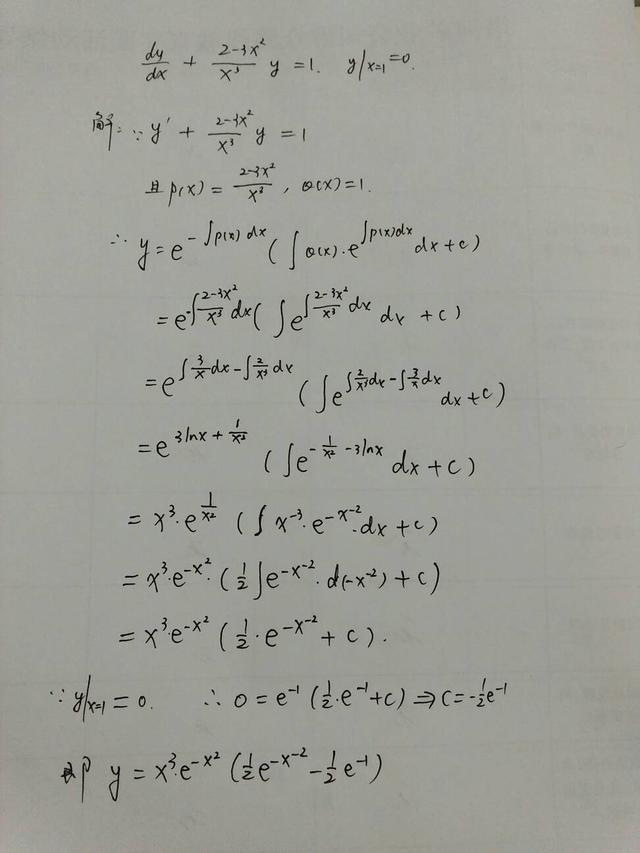 dy/dx + (2-3x²)/x³ y = 1. y|x=1 = 0.
解: ∵ y' + (2-3x²)/x³ y = 1
且 p(x) = (2-3x²)/x³, Q(x) = 1.
∴ y = e^(-∫p(x)dx) (∫Q(x)·e^(∫p(x)dx) dx + c)
= e^(-∫(2-3x²)/x³ dx) (∫e^(∫(2-3x²)/x³ dx) dx + c)
= e^(∫3/x dx - ∫2/x³ dx) (∫e^(∫2/x³ dx - ∫3/x dx) dx + c)
= e^(3lnx + 1/x²) (∫e^(-1/x² - 3lnx) dx + c)
= x³·e^(1/x²) (∫x^(-3)·e^(-x^(-2))·dx + c)
= x³·e^(-x²)·(½∫e^(-x^(-2))·d(-x^(-2)) + c)
= x³·e^(-x²) (½·e^(-x^(-2)) + c).
∵ y|x=1 = 0. ∴ 0 = e^(-1) (½·e^(-1) + c) ⇒ c = -½e^(-1)
即 y = x³·e^(-x²) (½e^(-x^(-2)) - ½e^(-1))